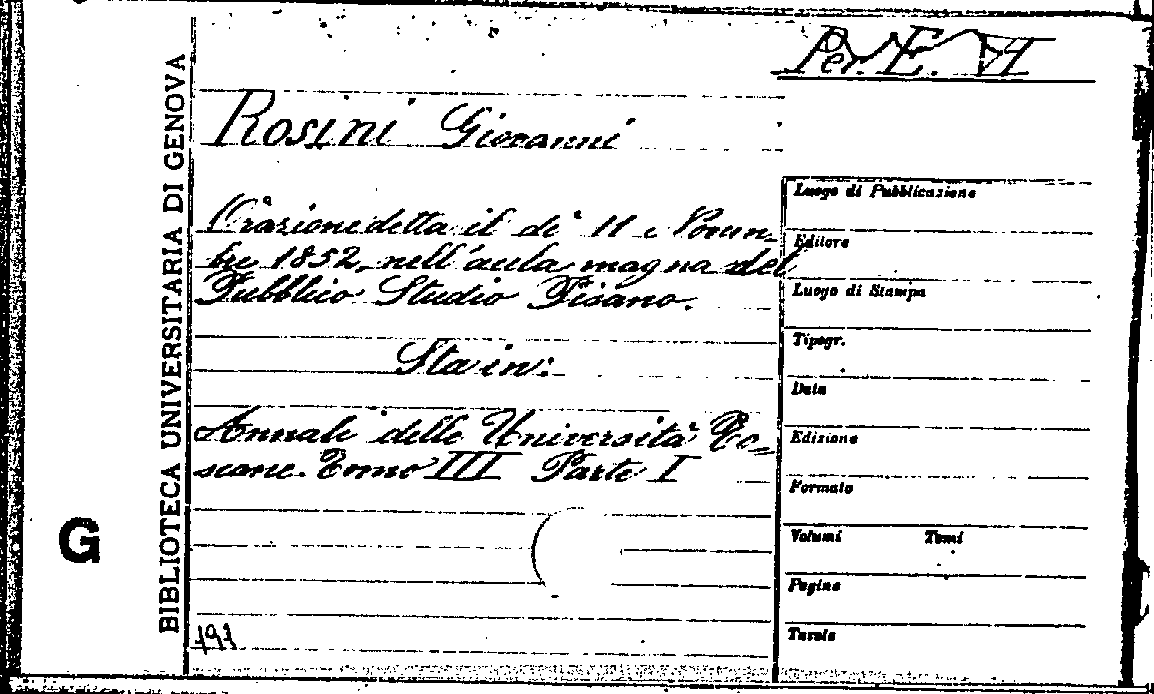 Per. E. VI
Rosini Giovanni
Orazione detta il dì 11 Novem-
bre 1852, nell'aula magna del
Pubblico Studio Pisano.
Sta in:
Annali delle Università To-
scane. Tomo III Parte I
191
G
BIBLIOTECA UNIVERSITARIA DI GENOVA
Luogo di Pubblicazione
Editore
Luogo di Stampa
Tipogr.
Data
Edizione
Formato
Volumi Tomi
Pagine
Tavole